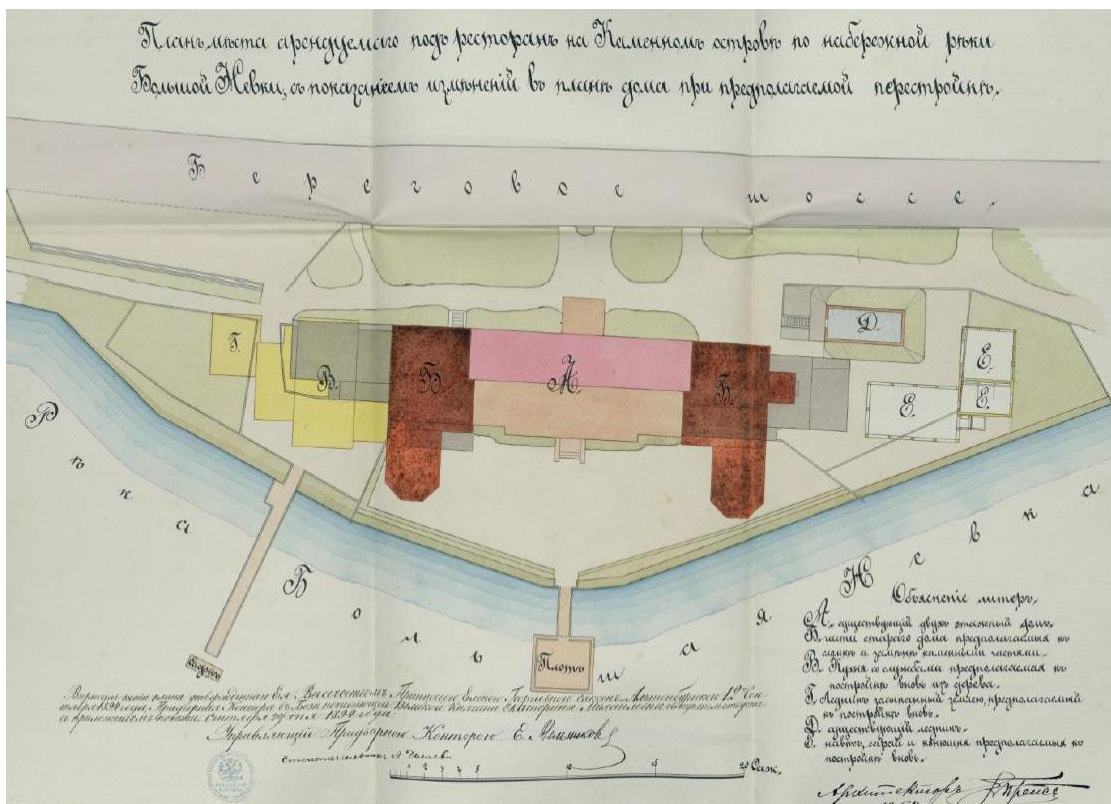 Планъ мѣста арендуемаго подъ ресторанъ на Каменномъ островѣ по набережной рѣки
Большой Невки, съ показаніемъ измѣненій въ планѣ дома при предполагаемой перестройкѣ.
Береговое шоссе.
Г.
В.
Б.
А.
Б.
Д.
Е.
Е.
Е.
Рѣка Большая Невка
Плотъ
Объясненіе литеръ.
А. существующій двухъ этажный домъ.
Б. части стараго дома предполагаемыя къ
сломкѣ и замѣнѣ каменными частями.
В. Кухня со службами предполагаемая къ
постройкѣ вновь изъ дерева.
Г. Ледникъ засыпанный землею, предполагаемый
къ постройкѣ вновь.
Д. существующій ледникъ.
Е. навѣсъ, сарай и конюшня предполагаемыя къ
постройкѣ вновь.
Вѣрность копіи плана утвержденнаго Ея Высочествомъ Принцессою Еленою Георгіевною Саксенъ-Альтенбургскою 12 Сен-
тября 1894 года, Придворная Контора Великой Княгини Екатерины Михайловны
съ приложеніемъ печати. Сентября 1894 года.
Управляющій Придворною Конторою Е.
1 2 3 4 5 10 15 20 Саж.
Архитекторъ